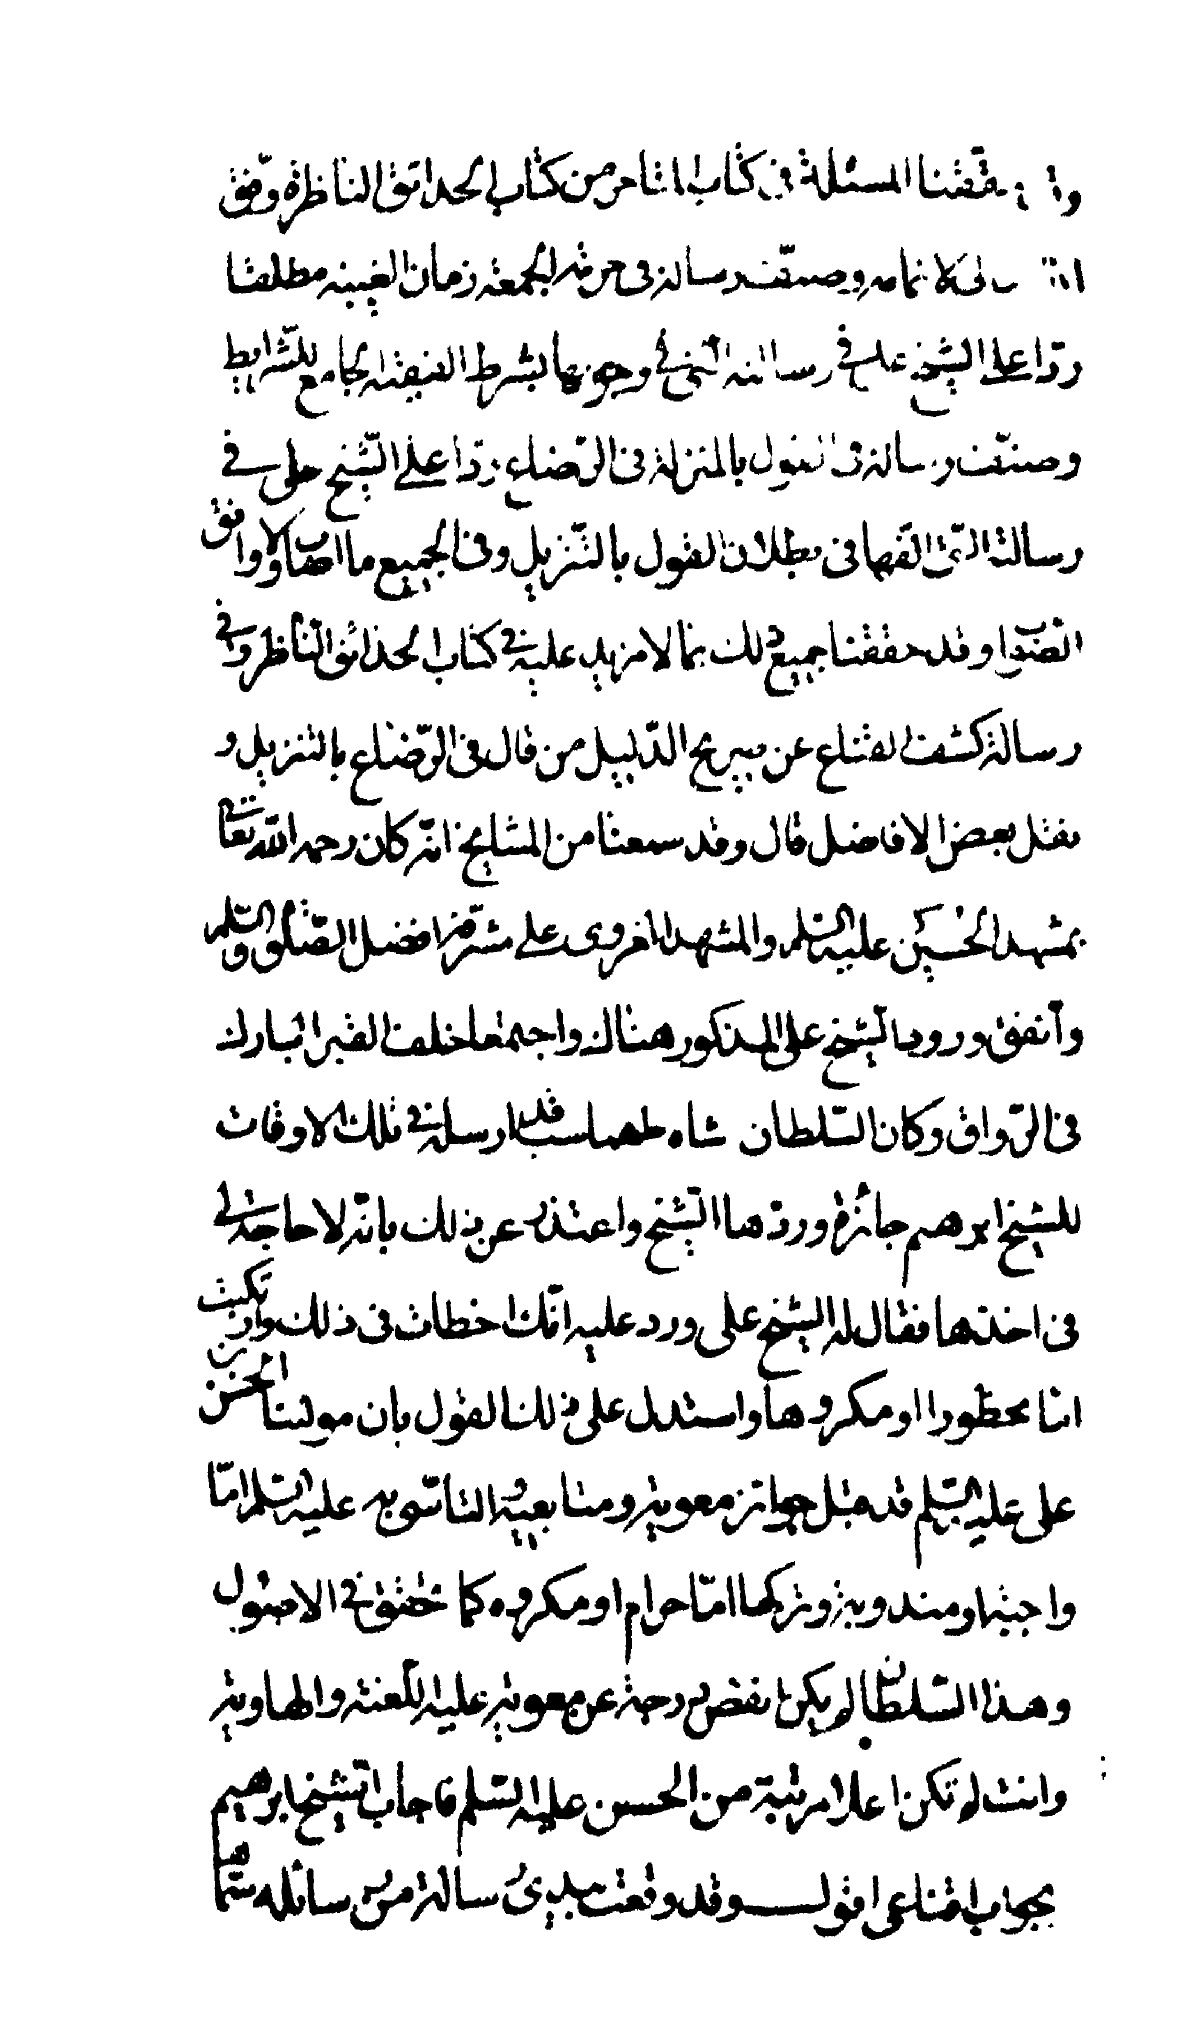 وقد حققنا المسئلة فى كتاب المتاجر من كتاب الحدائق الناظرة وفق
الله تعالى لاتمامه وصنف رسالة فى حرمة الجمعة زمان الغيبة مطلقا
ردا على الشيخ على فى رسالته التى فى وجوبها بشرط الفقيه الجامع للشرايط
وصنف رسالة فى القول بالمنزلة فى الرضاع ردا على الشيخ على فى
رسالته التى الفها فى بطلان القول بالتنزيل وفى الجميع ما اصاب ولا وافق
الصواب وقد حققنا جميع ذلك بما لا مزيد عليه فى كتاب الحدائق الناظرة وفى
رسالة كشف القناع عن صريح الدليل من قال فى الرضاع بالتنزيل و
نقل بعض الافاضل قال وقد سمعنا من المشايخ انه كان رحمه الله تعالى
بمشهد الحسين عليه السلم والمشهد الغروى على مشرفهما افضل الصلوة والسلم
واتفق ورود الشيخ على المذكور هناك واجتمعا خلف القبر المبارك
فى الرواق وكان السلطان شاه طهماسب قد ارسل فى تلك الاوقات
للشيخ ابرهيم جائزة وردها الشيخ واعتذر عن ذلك بانه لا حاجة لى
فى اخذها فقال له الشيخ على ورد عليه انك اخطات فى ذلك وارتكبت
اما محظورا او مكروها واستدل على ذلك القول بان مولينا الحسن بن
على عليه السلم قد قبل جوائز معوية ومتابعته والتاسى به عليه السلم اما
واجبة او مندوبة وتركها اما حرام او مكروه كما حقق فى الاصول
وهذا السلطان لم يكن انقص درجة عن معوية عليه اللعنة والهاوية
وانت لم تكن اعلا مرتبة من الحسن عليه السلم فاجاب الشيخ ابرهيم
بجواب اقناعى اقول وقد وقعت بيدى رسالة من رسائله سماها